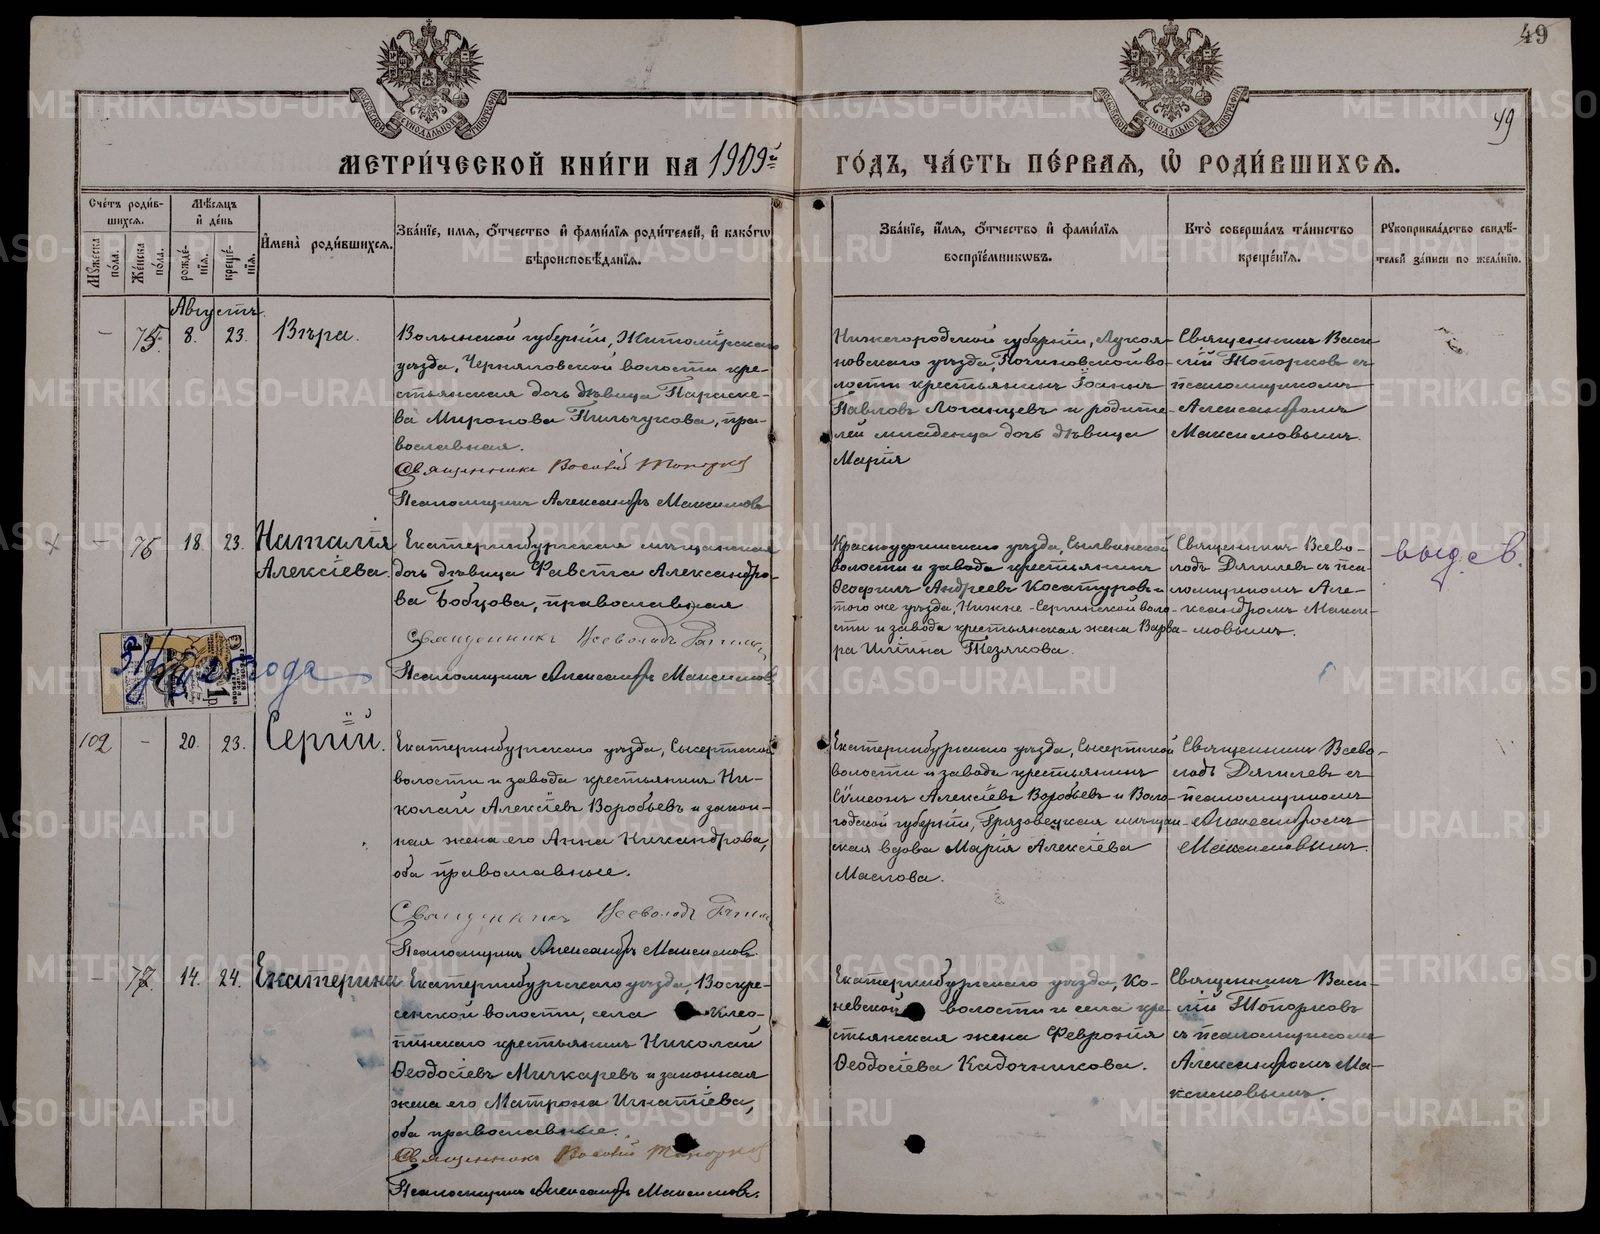 49
49
МЕТРИ́ЧЕСКОЙ КНИ́ГИ НА 1909й
ГО́ДЪ, ЧА́СТЬ ПЕ́РВАѦ, Ѡ҆ РОДИ́ВШИХСѦ.
Сче́тъ роди́в-
шихсѧ.
Мꙋ́жеска
по́ла.
Же́нска
по́ла.
Мѣ́сѧцъ
и҆ де́нь
рожде́-
нїѧ.
креще́-
нїѧ.
И҆мена̀ роди́вшихсѧ.
Зва́нїе, имѧ, ѻ҆́тчество и҆ фами́лїѧ роди́телей, и҆ како́гѡ
вѣроисповѣ́данїѧ.
Зва́нїе, и҆́мѧ, ѻ҆́тчество и҆ фами́лїѧ
воспрїе́мникѡвъ.
Кто̀ соверша́лъ та́инство
креще́нїѧ.
Рꙋкоприкла́дство свидѣ́-
телей за́писи по жела́нїю.
Августъ.
- 75. 8. 23. Вѣра.
Волынской губерніи, Житомірскаго
уѣзда, Черняховской волости кре-
стьянская дочь дѣвица Параске-
ва Миронова Пильчукова, пра-
вославная.
Священникъ Василій Топорковъ
Псаломщикъ Александръ Максимовъ
Нижегородской губерніи, Лукоя-
новскаго уѣзда, Починковской во-
лости крестьянинъ Іоаннъ
Павловъ Логанцевъ и родите-
лей младенца дочь дѣвица
Марія
Священникъ Васи-
лій Топорковъ съ
псаломщикомъ
Александромъ
Максимовымъ.
- 76 18. 23. Наталія
Алексіева.
Екатеринбургская мѣщанская
дочь дѣвица Фавста Александро-
ва Бобцова, православная
Священникъ Всеволодъ
Псаломщикъ Александръ Максимовъ
Красноуфимскаго уѣзда, Сылвинской
волости и завода крестьянинъ
Ѳеофилъ Андреевъ Косатуровъ и
того же уѣзда, Нижне-Сергинской воло-
сти и завода крестьянская жена Варва-
ра Ильина Тезякова.
Священникъ Всево-
лодъ Дягилевъ съ пса-
ломщикомъ Але-
ксандромъ Макси-
мовымъ.
года
102 - 20. 23. Сергій.
Екатеринбургскаго уѣзда, Сысертской
волости и завода крестьянинъ Ни-
колай Алексіевъ Воробьевъ и закон-
ная жена его Анна Никандрова,
оба православные.
Священникъ Всеволодъ
Псаломщикъ Александръ Максимовъ.
Екатеринбургскаго уѣзда, Сысертской
волости и завода крестьянинъ
Сѵмеонъ Алексіевъ Воробьевъ и Воло-
годской губерніи, Грязовецкая мѣщан-
ская вдова Марія Алексіева
Маслова.
Священникъ Всево-
лодъ Дягилевъ съ
псаломщикомъ
Александромъ
Максимовымъ.
- 77. 14. 24. Екатерина
Екатеринбургскаго уѣзда, Воскре-
сенской волости, села Клео-
пинскаго крестьянинъ Николай
Ѳеодосіевъ Мичкаревъ и законная
жена его Матрона Игнатіева,
оба православные.
Священникъ Василій Топорковъ
Псаломщикъ Александръ Максимовъ.
Екатеринбургскаго уѣзда, Ко-
невской волости и села кре-
стьянская жена Февронія
Ѳеодосіева Кадочникова.
Священникъ Васи-
лій Топорковъ
съ псаломщикомъ
Александромъ Ма-
ксимовымъ.
METRIKI.GASO-URAL.RU